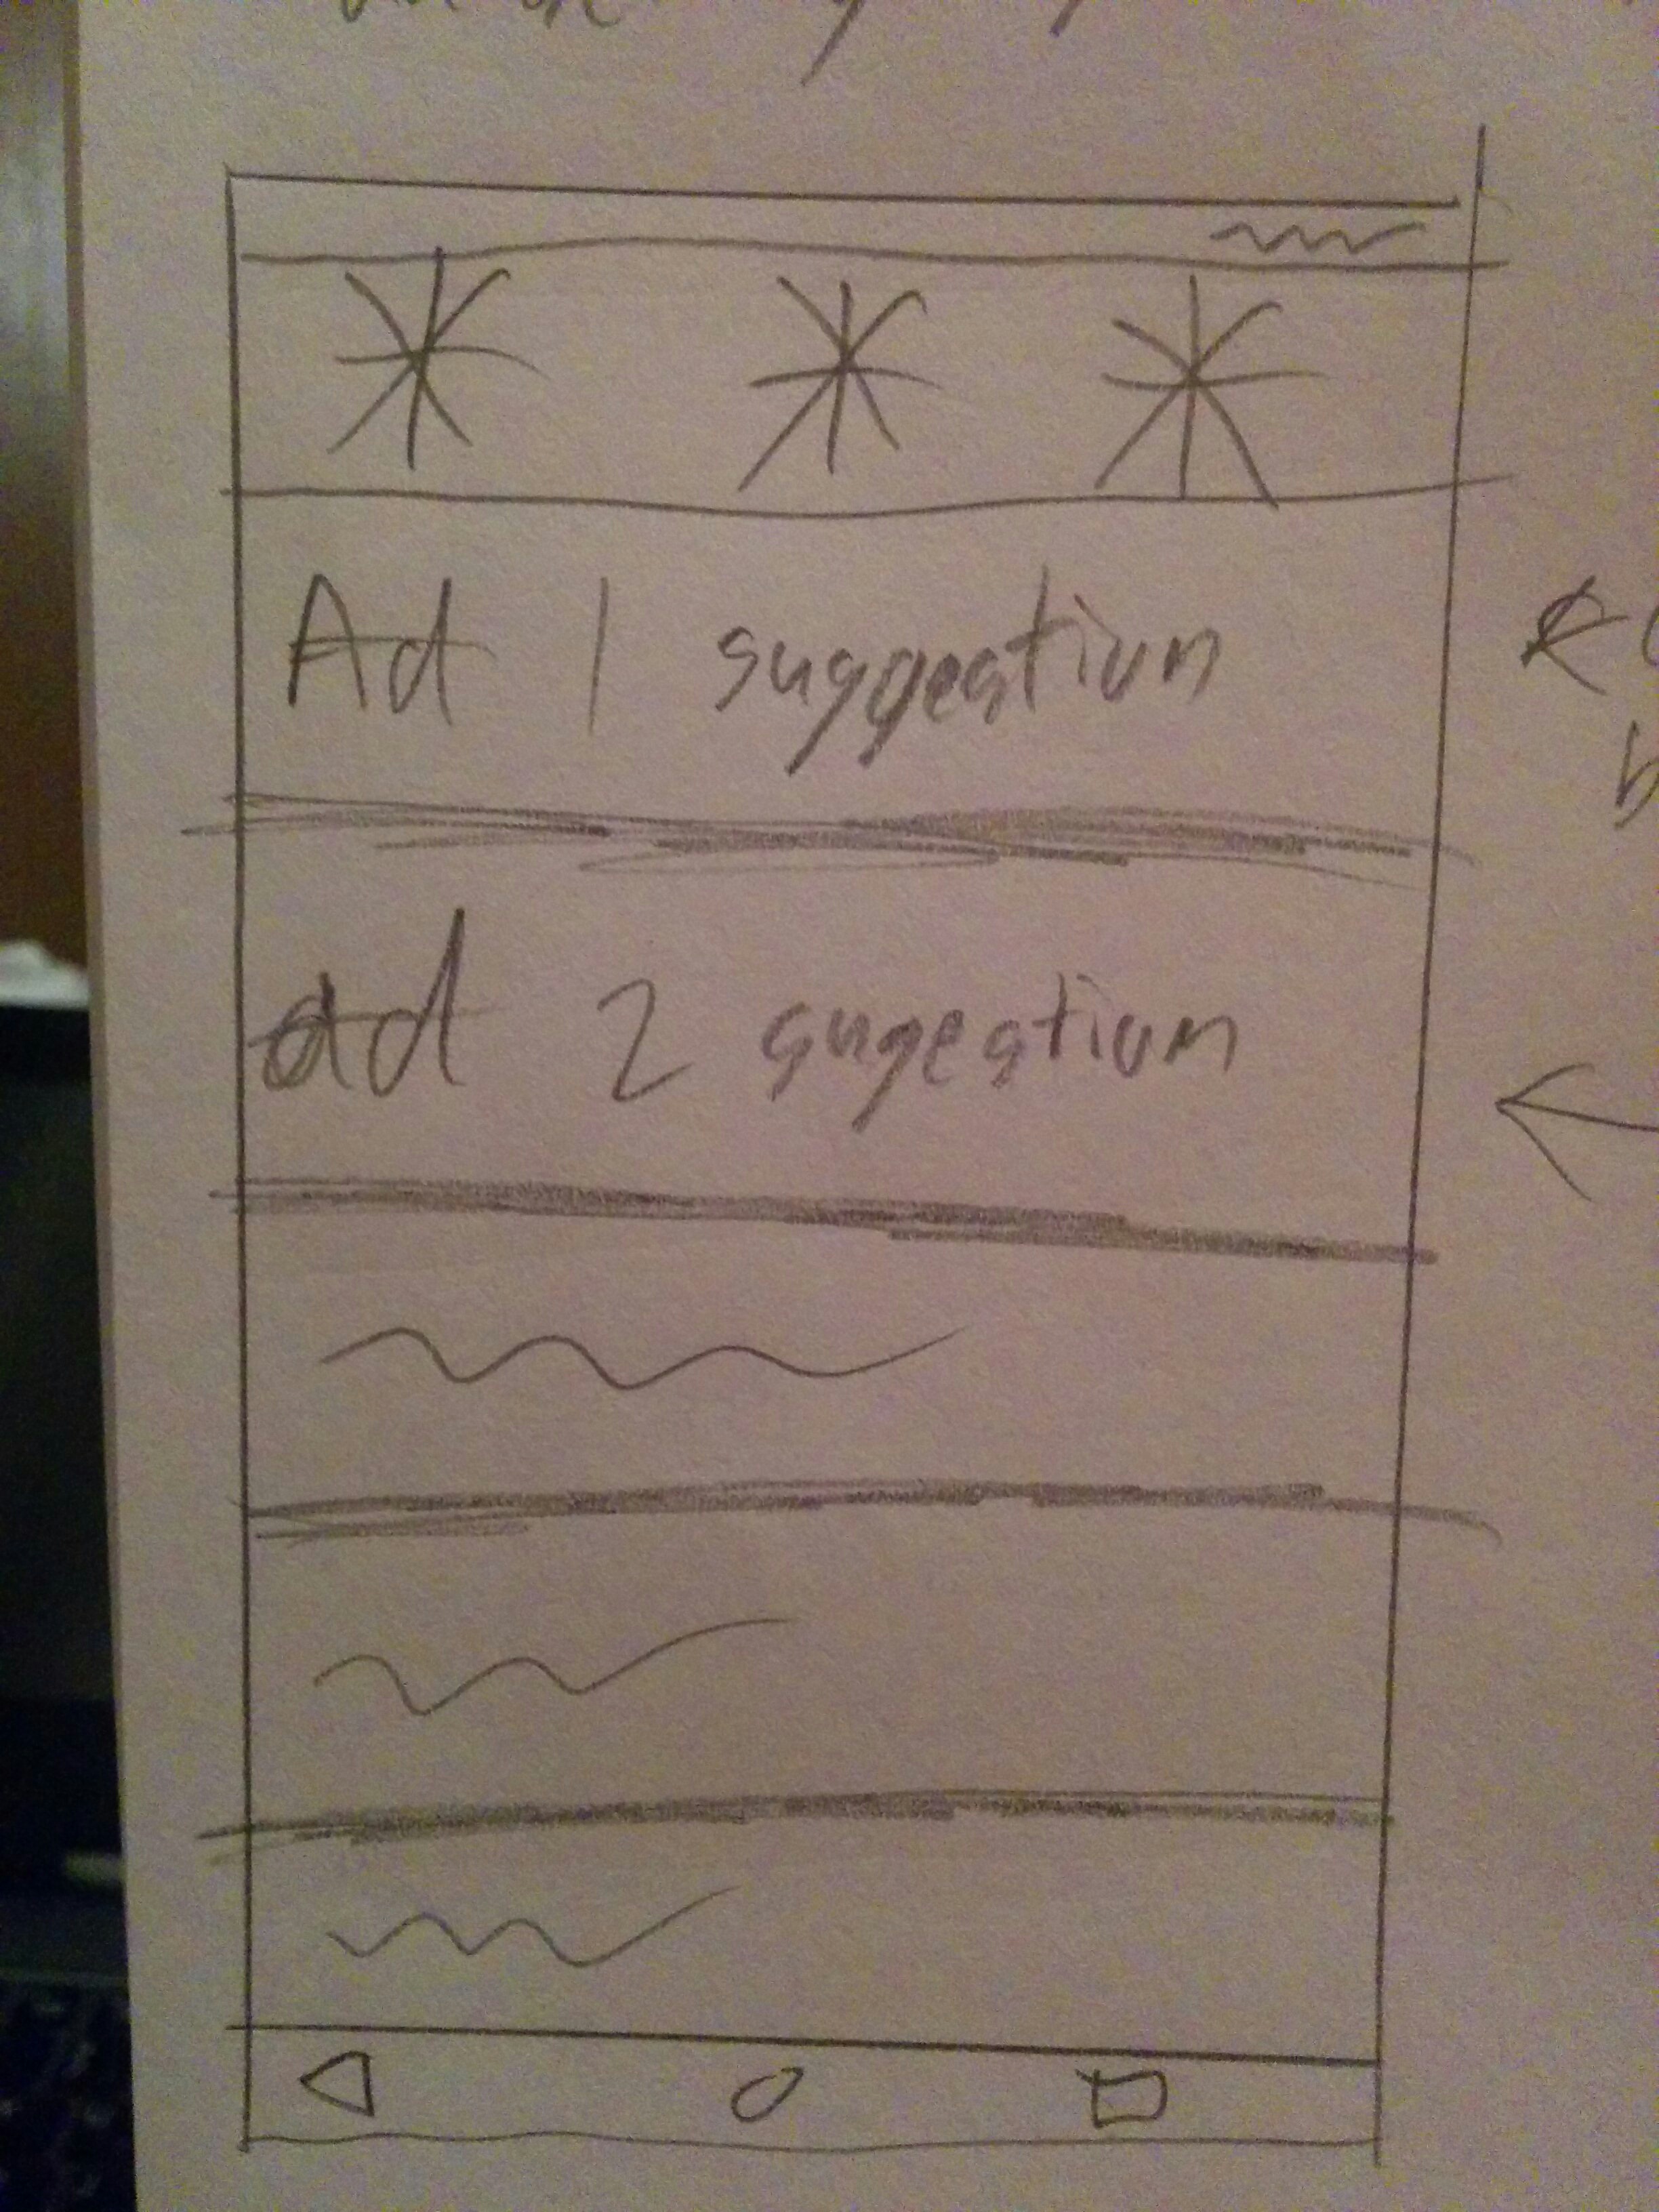 Ad 1 suggestion
ad 2 sugestion